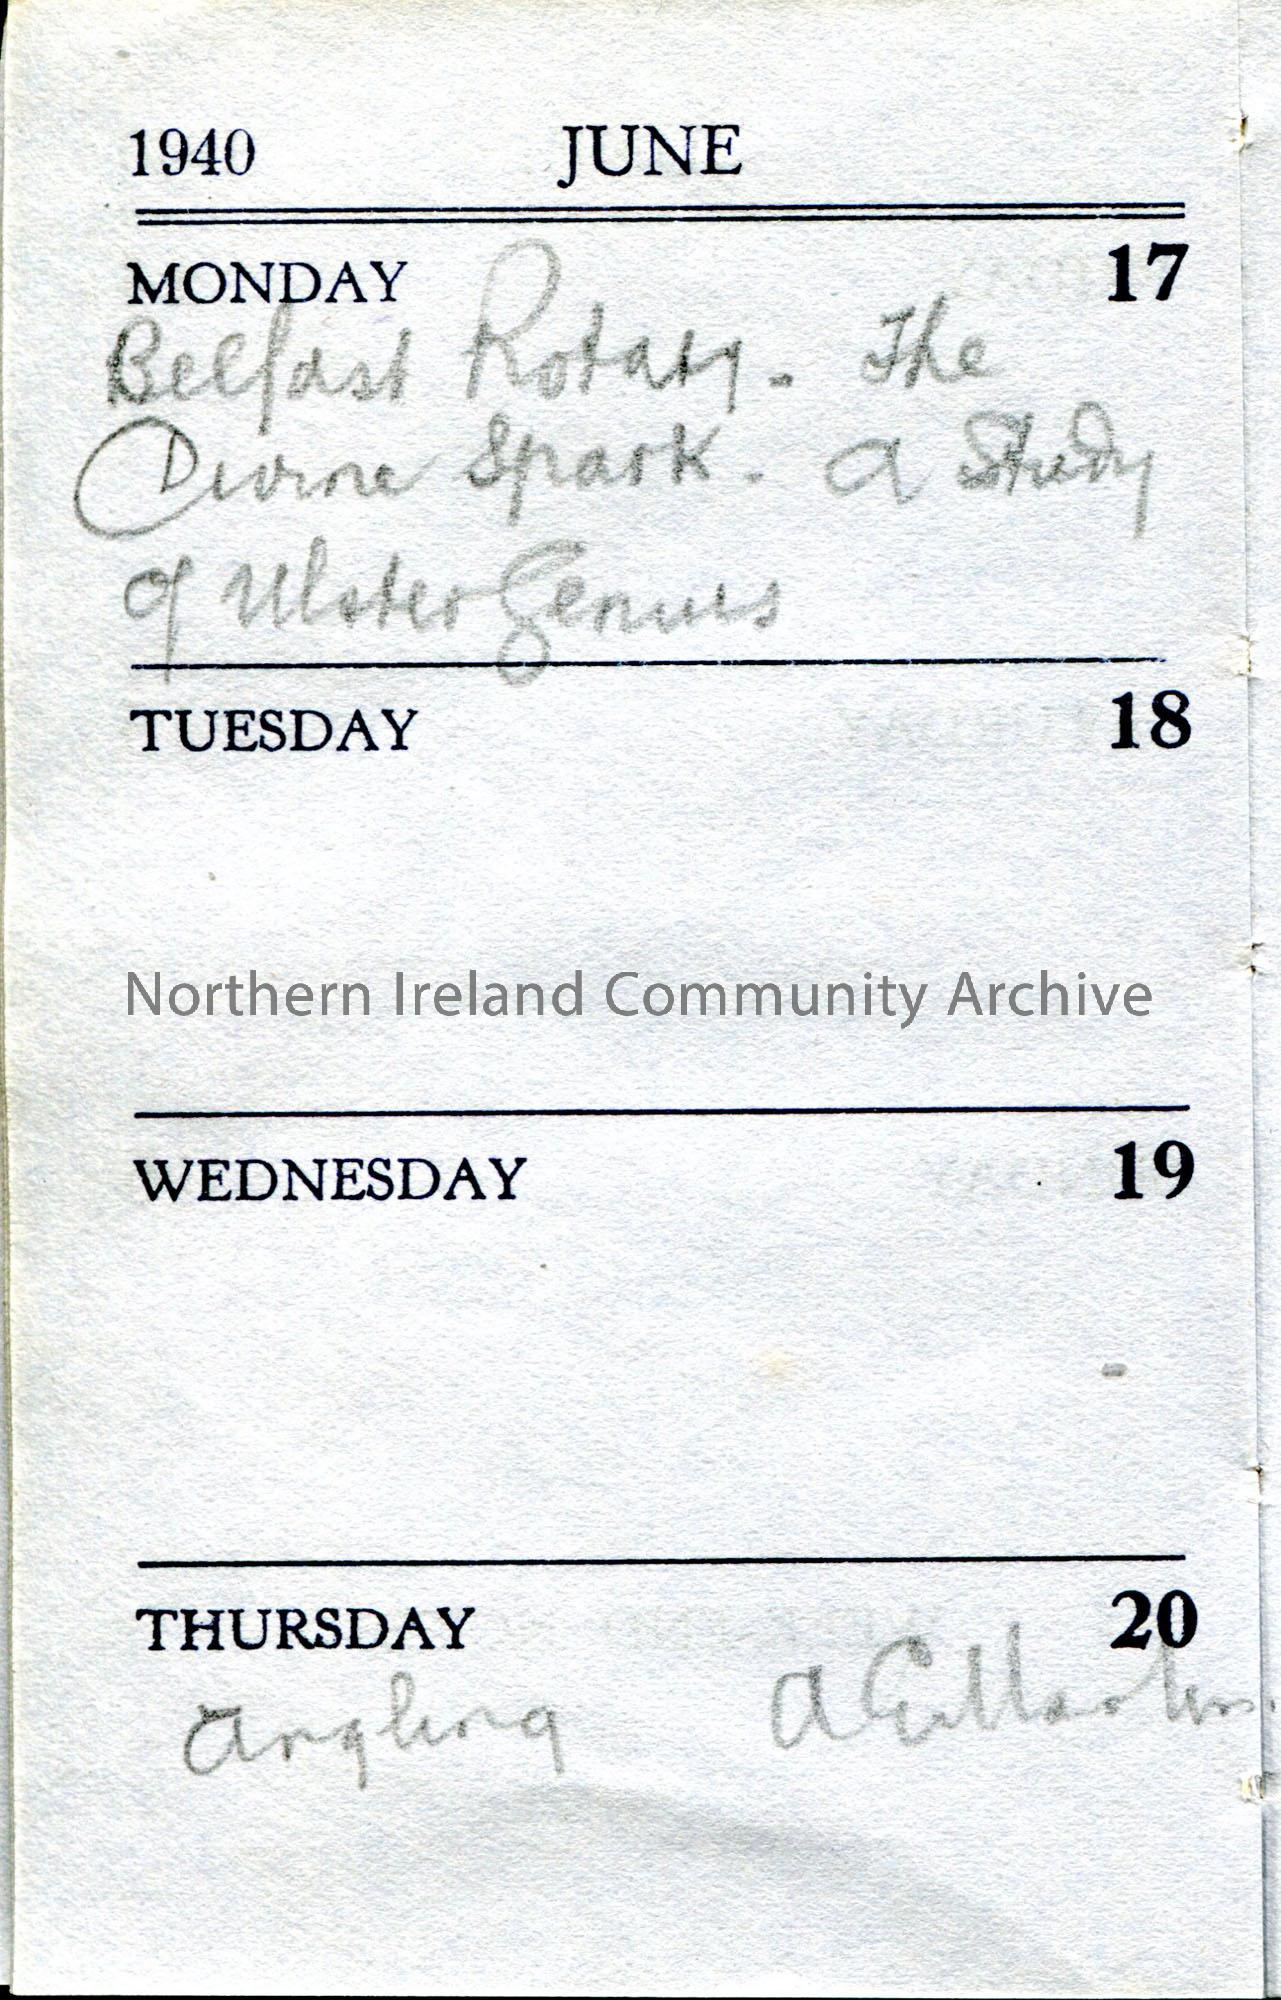 1940 JUNE
MONDAY 17
Belfast Rotary. The
Divine Spark. A Study
of Ulster Genius
TUESDAY 18
Northern Ireland Community Archive
WEDNESDAY 19
THURSDAY 20
Angling A